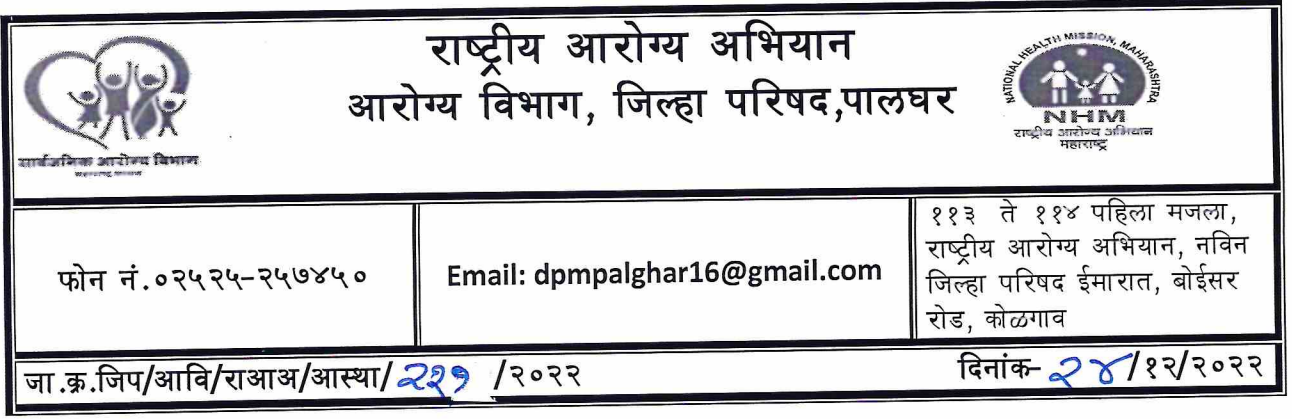 राष्ट्रीय आरोग्य अभियान
आरोग्य विभाग, जिल्हा परिषद,पालघर
सार्वजनिक आरोग्य विभाग
NATIONAL HEALTH MISSION, MAHARASHTRA
NHM
राष्ट्रीय आरोग्य अभियान
महाराष्ट्र
फोन नं.०२५२५-२५७४५०
Email: dpmpalghar16@gmail.com
११३ ते ११४ पहिला मजला,
राष्ट्रीय आरोग्य अभियान, नविन
जिल्हा परिषद ईमारात, बोईसर
रोड, कोळगाव
जा.क्र.जिप/आवि/राआअ/आस्था/२२१ /२०२२
दिनांक- २४/१२/२०२२